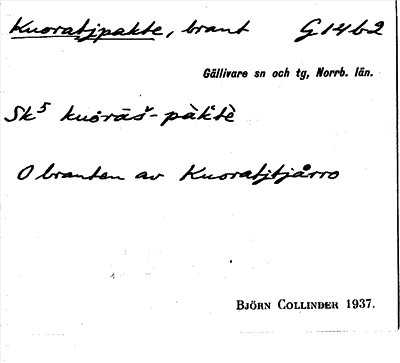 Kuoratjpakte, brant G14b2
Gällivare sn och tg, Norrb. län.
Sk⁵ kuo̊rāš-pàktè
O branten av Kuoratjtjårro
BJÖRN COLLINDER 1937.